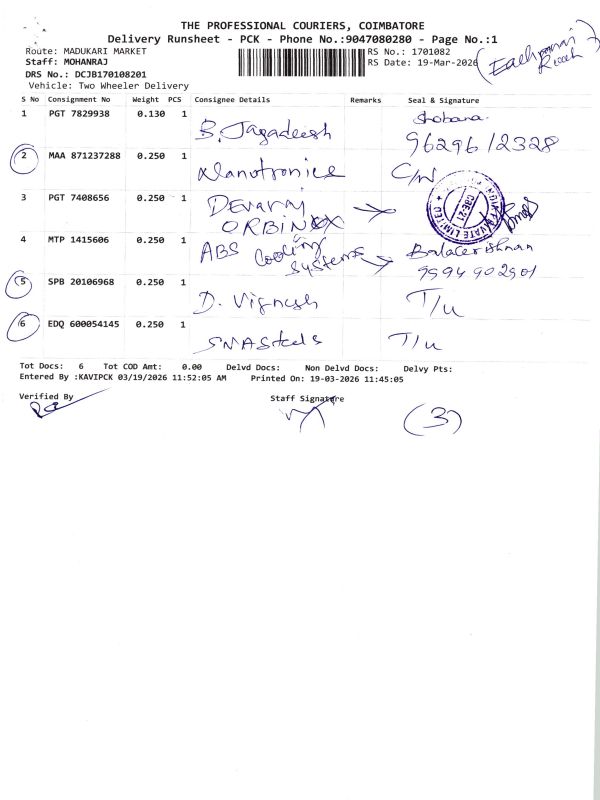 THE PROFESSIONAL COURIERS, COIMBATORE
Delivery Runsheet - PCK - Phone No.:9047080280 - Page No.:1
Route: MADUKARI MARKET
RS No. : 1701082
Staff: MOHANRAJ
RS Date: 19-Mar-2026
DRS No.: DCJB170108201
Vehicle: Two Wheeler Delivery
S No Consignment No Weight PCS Consignee Details Remarks Seal & Signature
1 PGT 7829938 0.130 1 B. Jagadeesh Shobana
96296 12328
2 MAA 871237288 0.250 1 Nanotronics C/N
3 PGT 7408656 0.250 1 Devaraj
ORBINOX
4 MTP 1415606 0.250 1 ABS Cooling Systems Balacrishnan
9994902901
5 SPB 20106968 0.250 1 D. Vignesh T/u
6 EDQ 600054145 0.250 1 SMA Steels T/u
Tot Docs: 6 Tot COD Amt: 0.00 Delvd Docs: Non Delvd Docs: Delvy Pts:
Entered By :KAVIPCK 03/19/2026 11:52:05 AM Printed On: 19-03-2026 11:45:05
Verified By Staff Signature
(3)